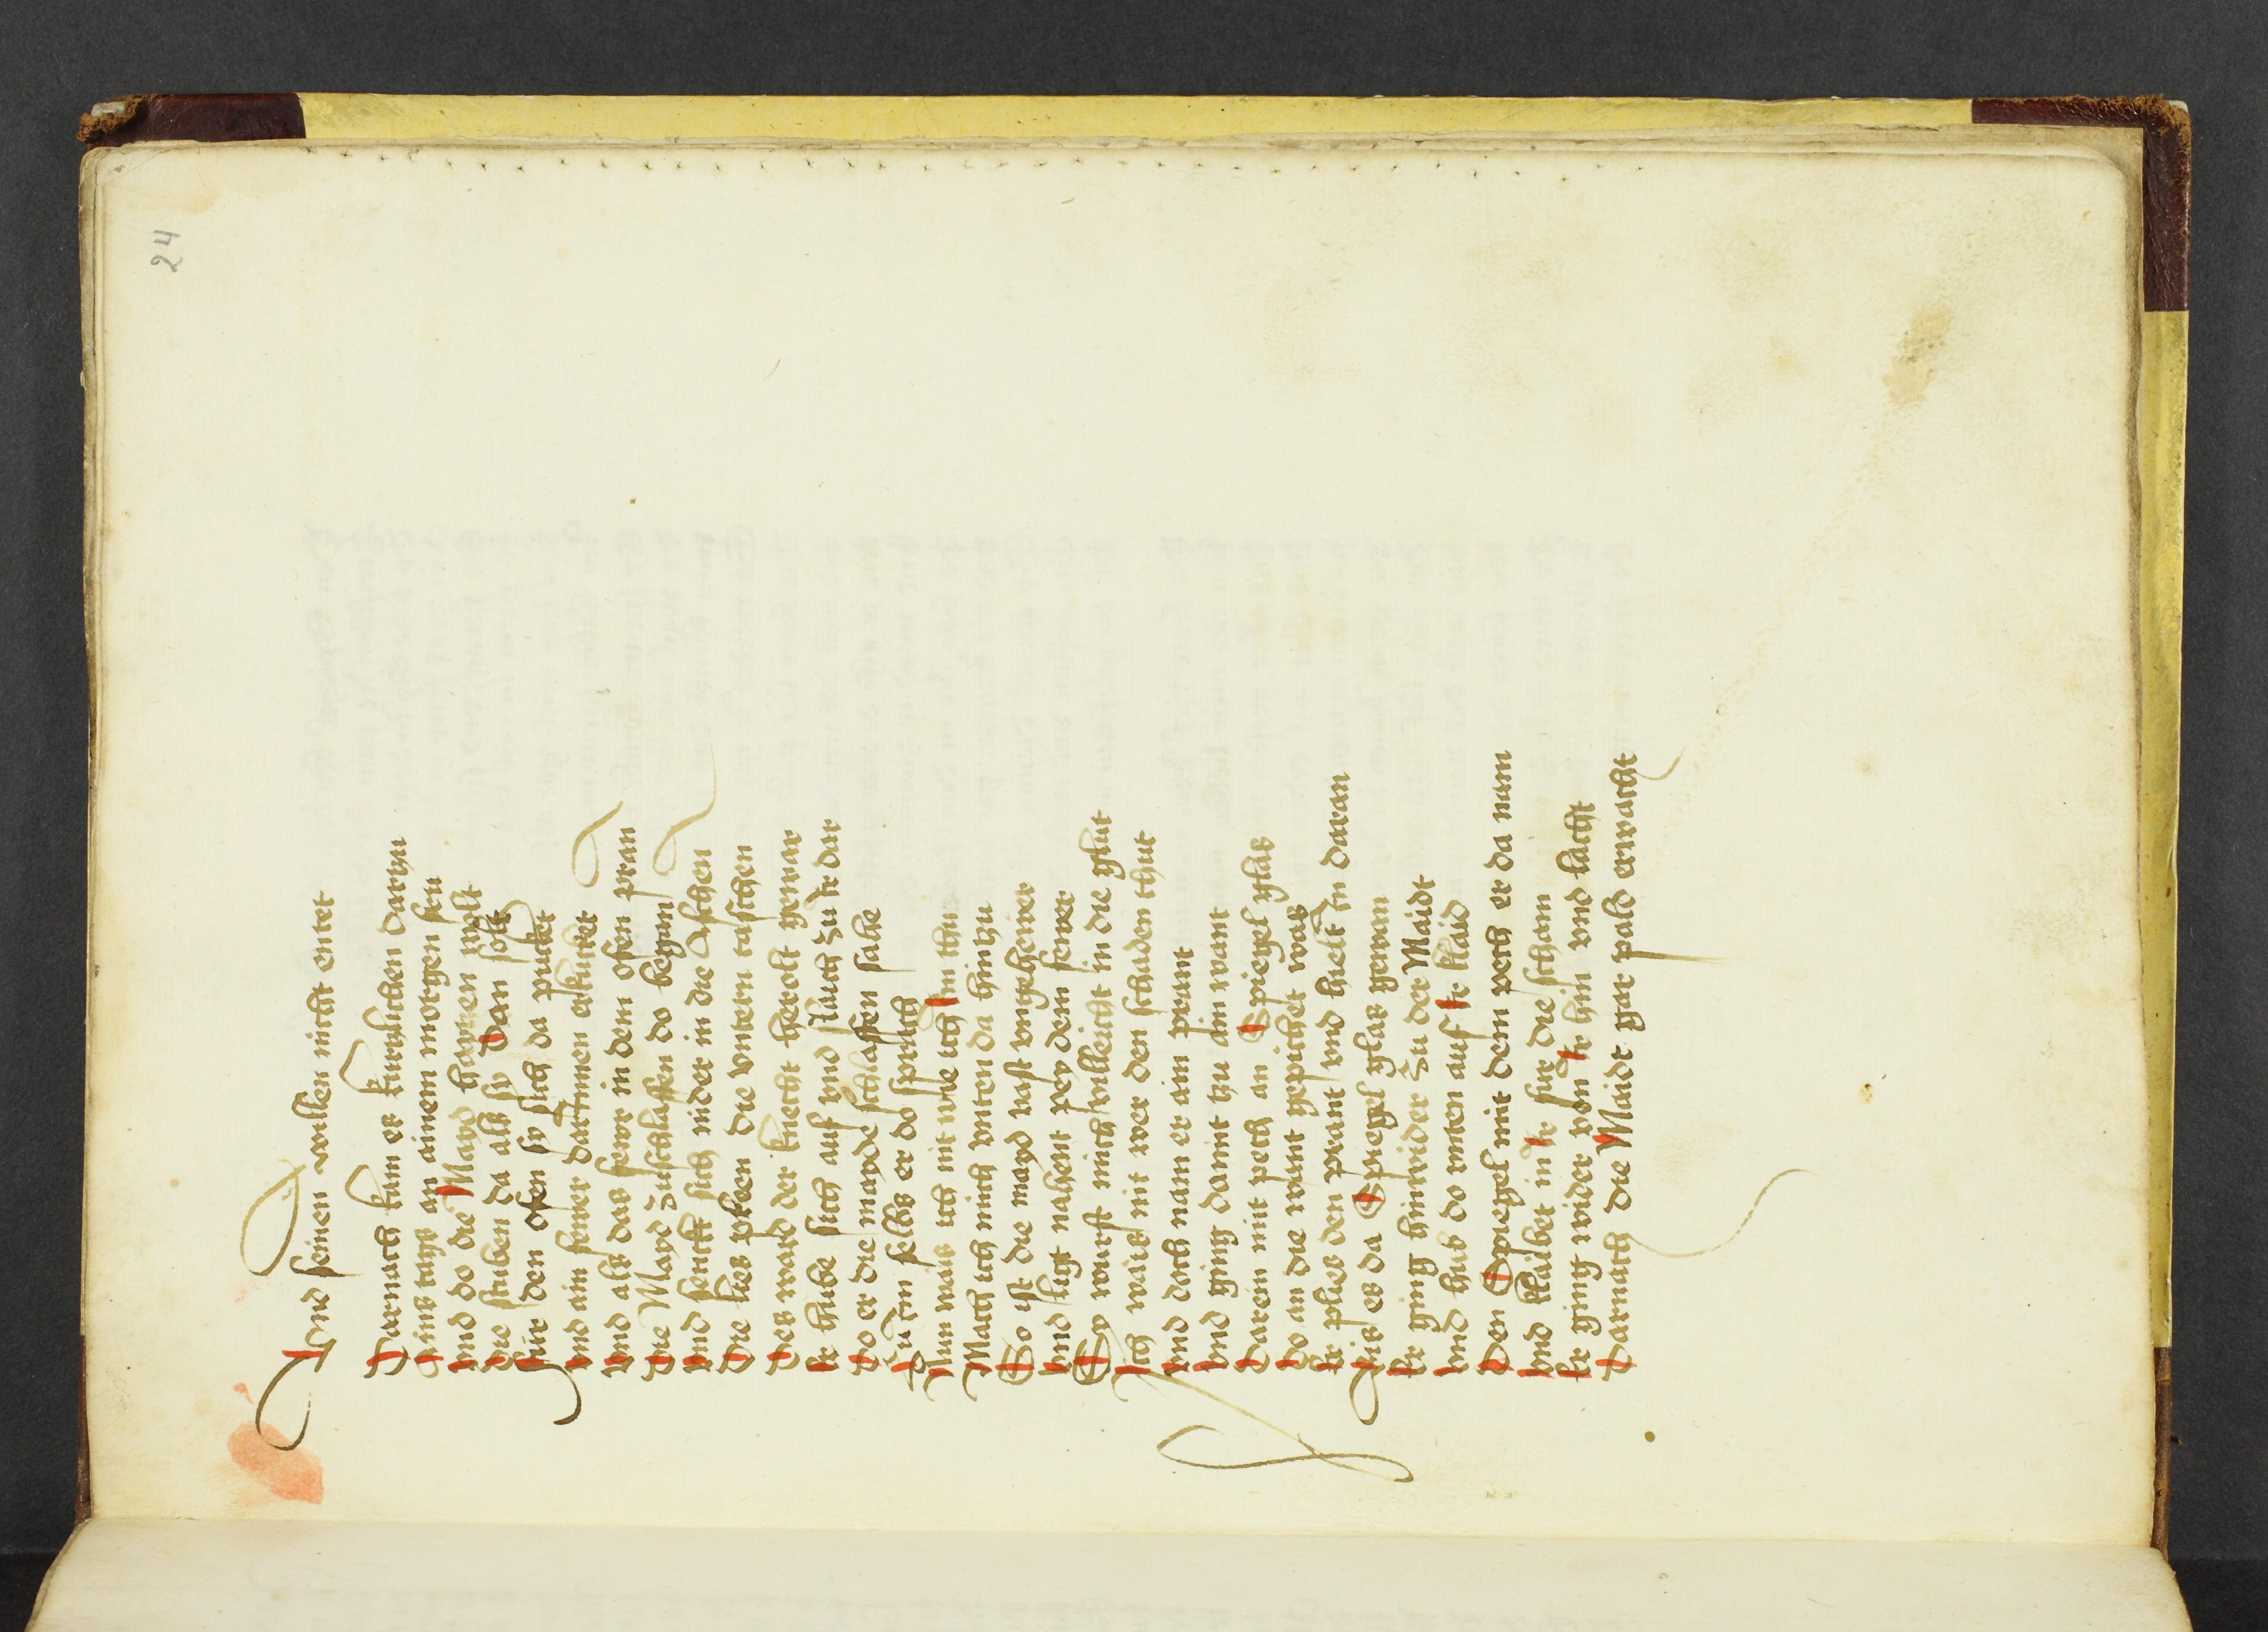 24
Vnd seinen willen nicht entet
Darnach kam es kurtzlichen dartzu
Ains tags an ainem morgen fru
vnd do die Mayd haytzen wolt
Die stuben da als sy dan solt
Für den ofen sy sich da pucket
vnd ain fewer darinnen erkucket
vnd als das fewr in dem ofen pran
Die Mayd zuschlaffen do began
vnd senckt sich nider in die Aschen
Die lies plecken die vntern taschen
Des ward der knecht herolt gewar
Er hube sich auf vnd slaich zu Ir dar
Do er die mayde schlaffen sahe
Zu im selbs er do sprach
Nun wais ich nit wie ich Im thu
Mach ich mich vnten da hintzu
So ist die mayd vast vngehewer
vnd ligt nahent pey dem fewer
Sy wurft mich villeicht in die glut
Ich wais nit wer den schaden thut
vnd doch nam er ain prant
vnd ging damit tzu ain want
Darein mit pech an Spiegel glas
Do an die want gepichet was
Er plies den prant vnd hielt in daran
Bis es da Spiegel glas gewan
Er ging hinwider zu der Maidt
vnd hub do vnten auf Ir klaid
Den Spiegel mit dem pech er da nam
vnd klaibet in Ir fur die scham
Er ging wider von Ir hin vnd lacht
Darnach die Maidt gar pald erwacht